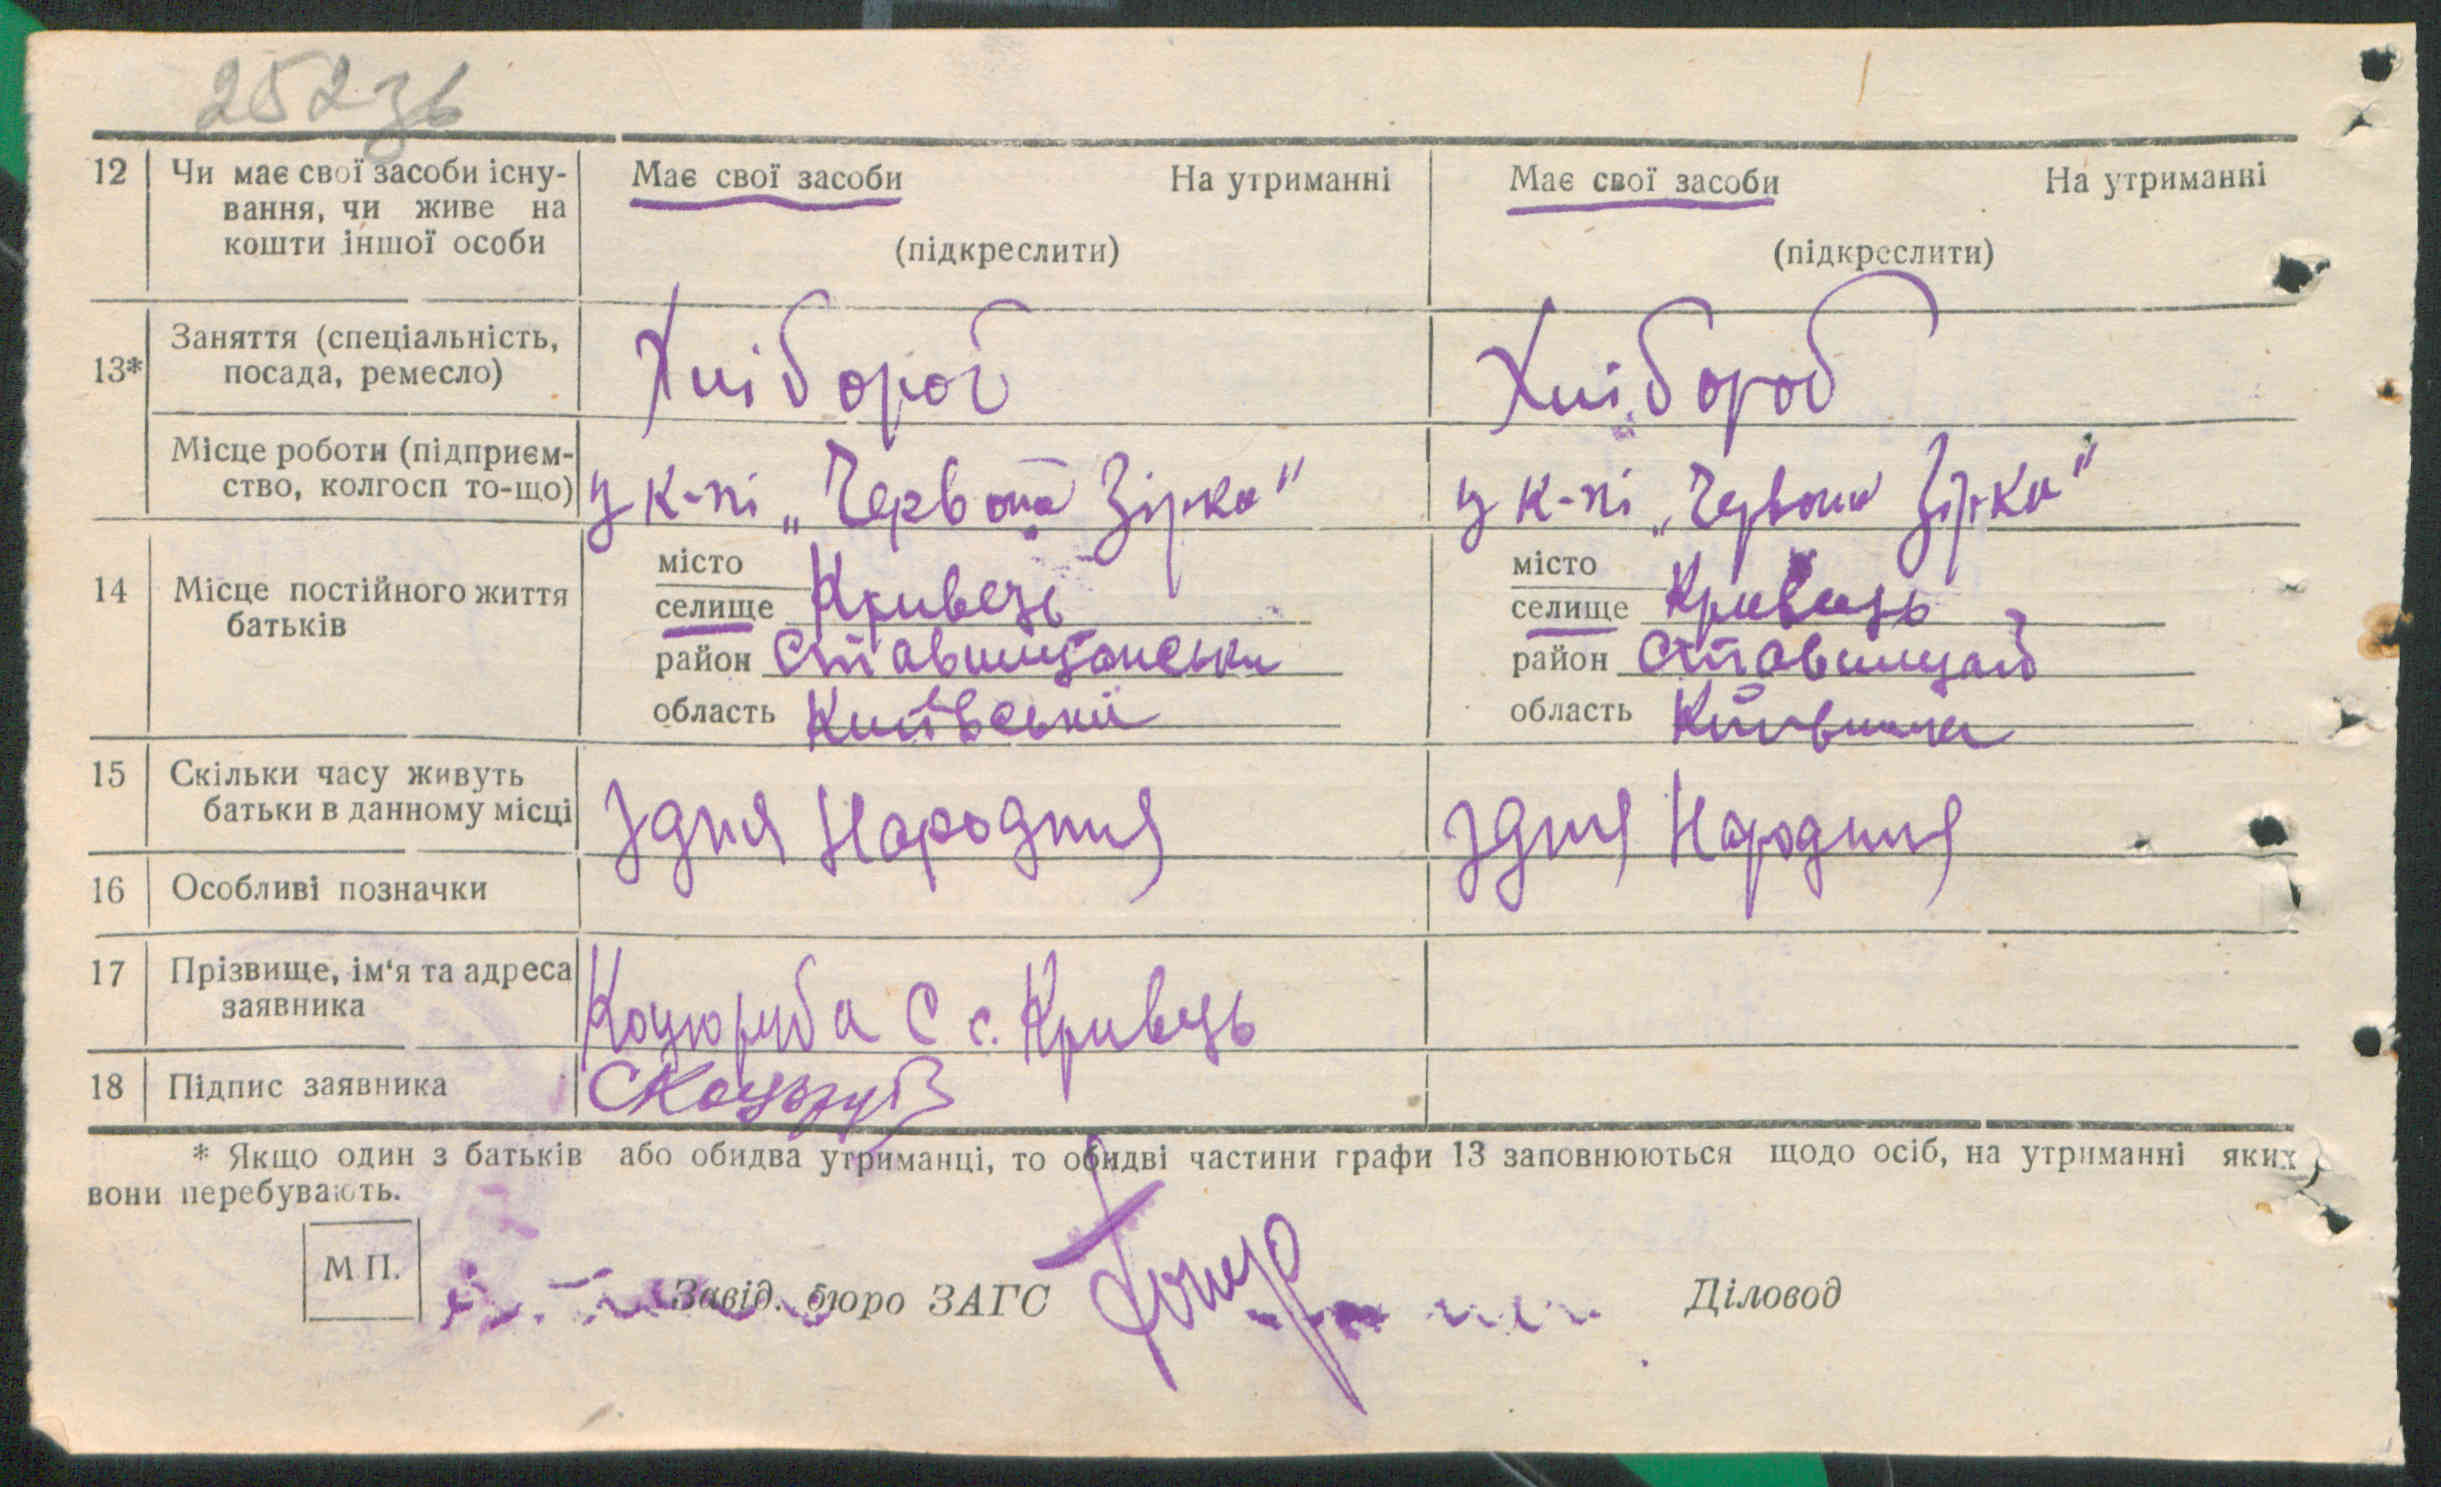 252зв
12 Чи має свої засоби існу- Має свої засоби На утриманні Має свої засоби На утриманні
вання, чи живе на
кошти іншої особи (підкреслити) (підкреслити)
13* Заняття (спеціальність, Хлібороб Хлібороб
посада, ремесло)
Місце роботи (підприєм- у к-пі „Червона Зірка" у к-пі „Червона Зірка"
ство, колгосп то-що)
місто місто
14 Місце постійного життя селище Кривець селище Кривець
батьків
район Ставищанськи район
область Київській область
15 Скільки часу живуть Здня Народння Здня Народння
батьки в данному місці
16 Особливі позначки
17 Прізвище, ім'я та адреса Коцюруба С с. Кривець
заявника
18 Підпис заявника СКоцюруб
* Якщо один з батьків або обидва утриманці, то обидві частини графи 13 заповнюються щодо осіб, на утриманні яких
вони перебувають.
М П.
Завід. бюро ЗАГС Діловод